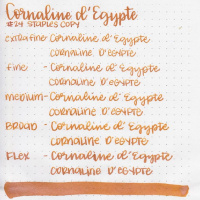 Cornaline d'Egypte
#24 STAPLES COPY
EXTRA FINE - Cornaline d'Egypte
CORNALINE D'EGYPTE
FINE - Cornaline d'Egypte
CORNALINE D'EGYPTE
MEDIUM - Cornaline d'Egypte
CORNALINE D'EGYPTE
BROAD - Cornaline d'Egypte
CORNALINE D'EGYPTE
FLEX - Cornaline d'Egypte
CORNALINE D'EGYPTE